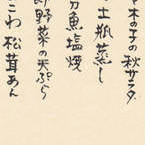 木の子の秋サラダ
土瓶蒸し
魚塩焼
野菜の天ぷら
こわ 松茸あん